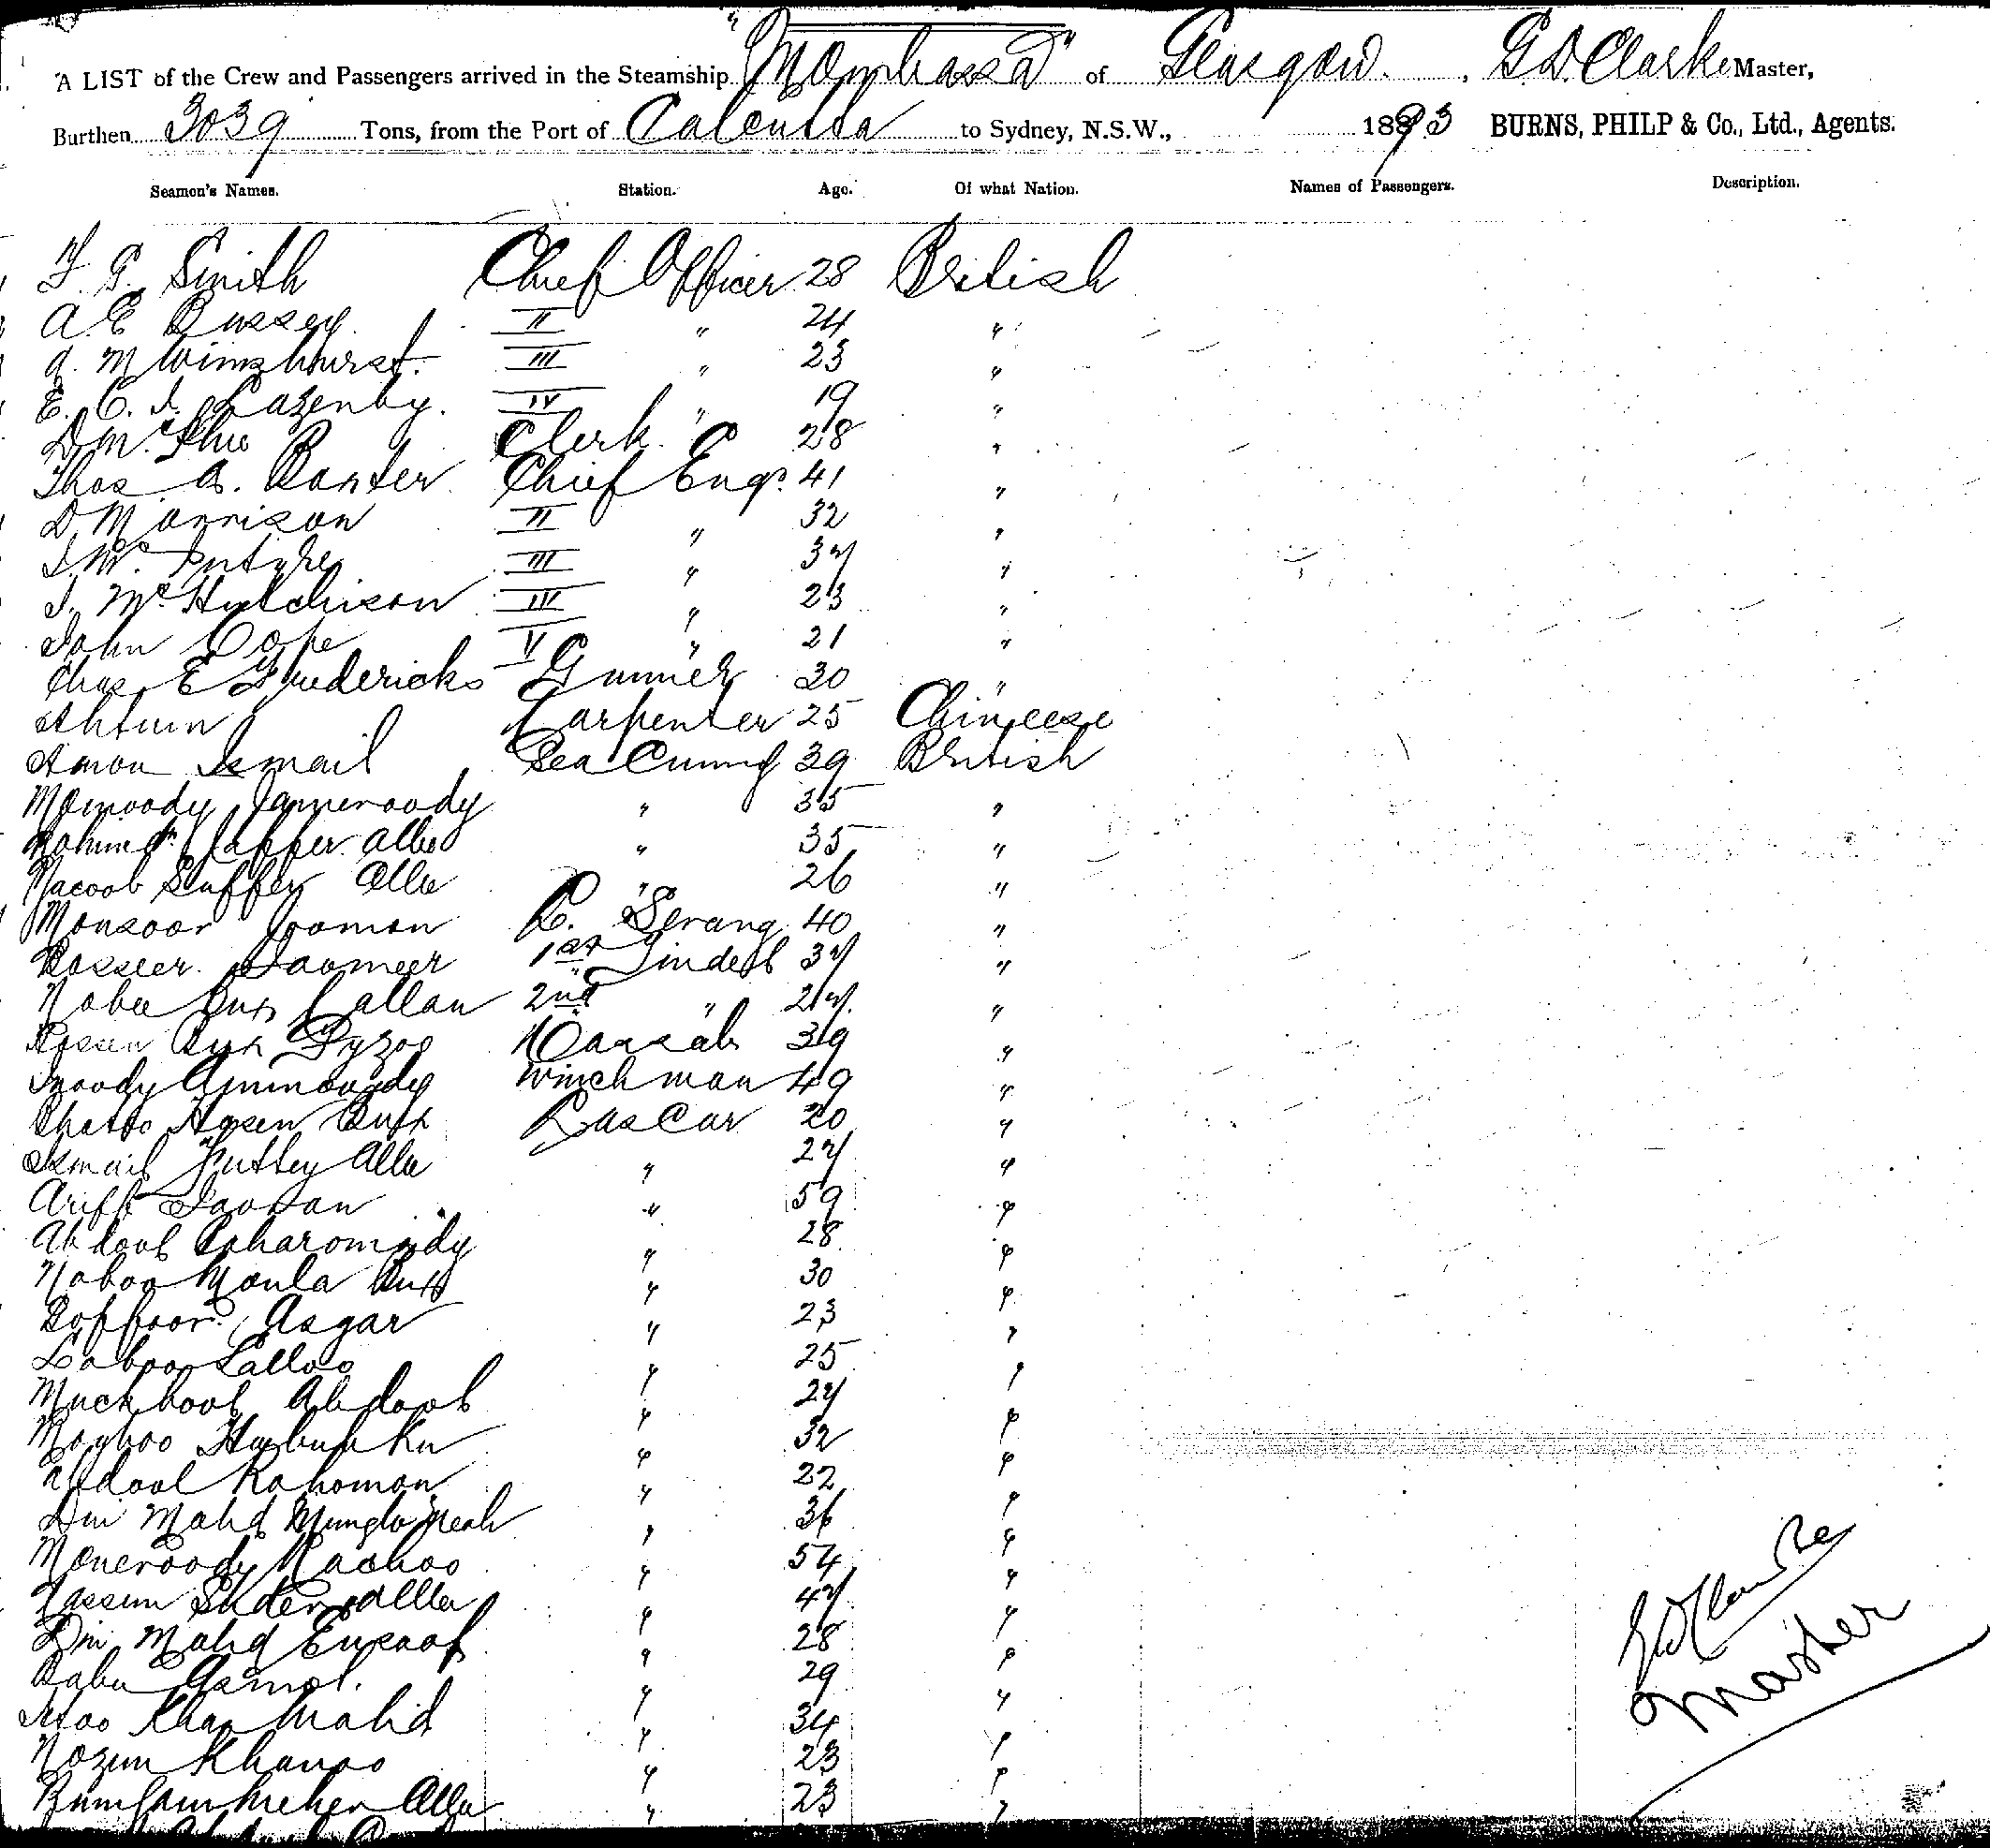 A LIST of the Crew and Passengers arrived in the Steamship "Mombassa" of Glasgow, G D Clarke Master,
Burthen 3039 Tons, from the Port of Calcutta to Sydney, N.S.W., 1893 BURNS, PHILP & Co., Ltd., Agents.
Seamen's Names. Station. Age. Of what Nation. Names of Passengers. Description.
F. G. Smith Chief Officer 28 British
A. E Bussey II " 24 "
A. M Wimshurst III " 23 "
E. C. I. Lazenby. IV " 19 "
D Mc Clerk 28 "
Thos. A. Baxter Chief Engr. 41 "
D Morrison II " 32 "
J. Mc Intyre III " 37 "
J. Mc Hutchison IV " 23 "
John Cope V " 21 "
Chas E Fredericks Gunner 30 "
Ahtum Carpenter 25 Chineese
Amon Ismail Sea Cunny 39 British
Momoody Jameroody " 35 "
Jaffer Allie " 35 "
Yacoob Suffer Allie " 26 "
Monsoor Joomon D. Serang 40 "
Bosseer 1st Tindel 37 "
Nobee Bux Callan 2nd " 27 "
Bux Fyzoo Cassab 39 "
Ammoody Winchman 49 "
Hosen Bux Lascar 20 "
Ismail Futtey Allie " 27 "
Ariff " 59 "
Abdool " 28 "
Noboo Moula Bux " 30 "
Goffoor Asgar " 23 "
Laboo Lalloo " 25 "
Muckbool Abdool " 27 "
" 32 "
Abdool Rohomon " 22 "
Din Mahd Munglo Meah " 36 "
Moneroody " 54 "
Kassim Allie " 47 "
Din Mahd Eusoof " 28 "
Babu Asmot. " 29 "
Khan Mahd " 34 "
Nozim Khanoo " 23 "
Meher Allie " 23 "
G D Clarke
Master